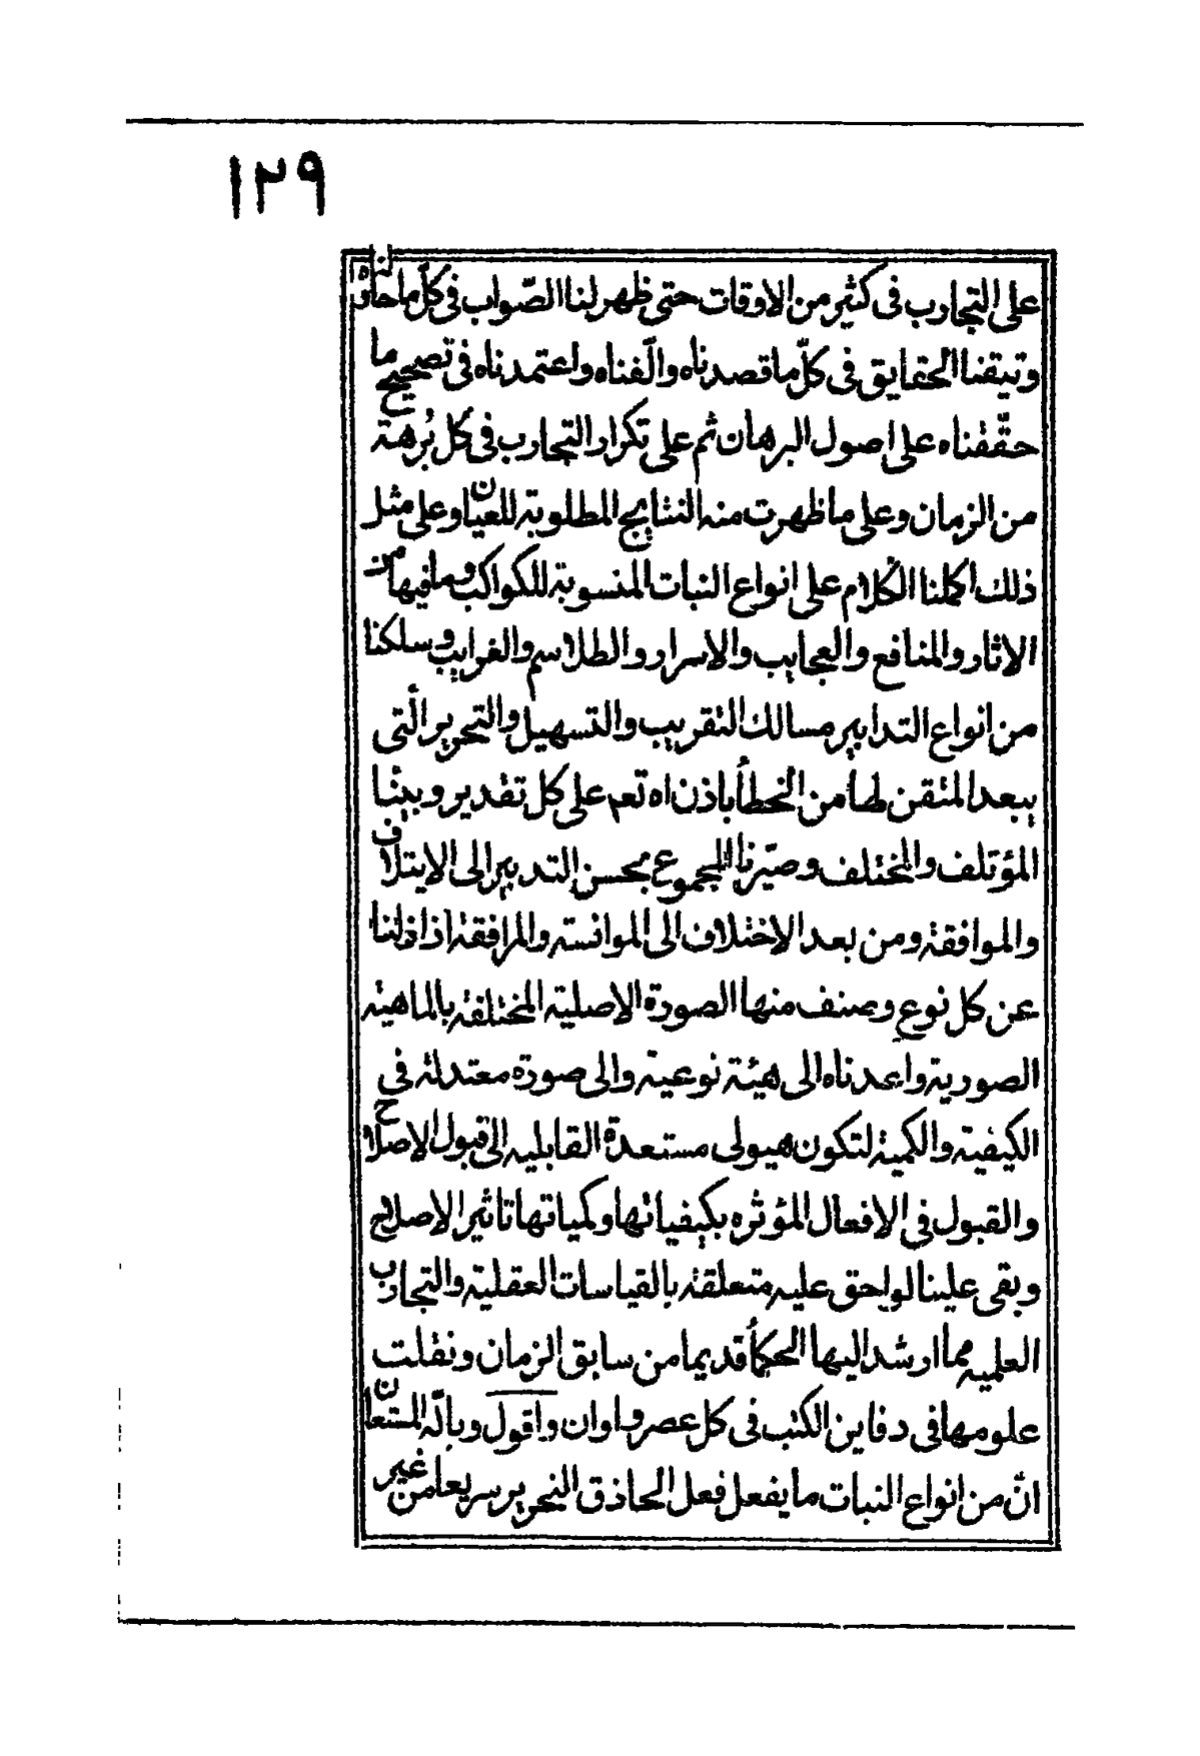 ١٢٩
على التجارب فى كثير من الاوقات حتى ظهر لنا الصّواب فى كلّ ما حاولناه
وتيقنا الحقايق فى كلّ ما قصدناه والّفناه واعتمدناه فى تصحيح ما
حقّقناه على اصول البرهان ثم على تكرار التجارب فى كل بُرهة
من الزمان وعلى ما ظهرت منه النتايج المطلوبة للعيان وعلى مثل
ذلك اكملنا الكلام على انواع النبات المنسوبة للكواكب وما فيها من
الاثار والمنافع والعجايب والاسرار والطلاسم والغرايب وسلكنا
من انواع التدابير مسالك التقريب والتسهيل والتحرير الّتى
يبعد المتقن لها من الخطأ باذن اه تعم على كل تقدير وبيّنا
المؤتلف والمختلف وصيّرنا المجموع بحسن التدبير الى الايتلاف
والموافقة ومن بعد الاختلاف الى الموانسة والمرافقة اذا ازلنا
عن كل نوع وصنف منها الصورة الاصلية المختلفة بالماهية
الصورية واعدناه الى هيئة نوعية والى صورة معتدلة فى
الكيفية والكمية لتكون هيولى مستعدة القابليه الى قبول الاصلاح
والقبول فى الافعال المؤثره بكيفياتها وكمياتها تاثير الاصلاح
وبقى علينا لواحق عليه متعلقة بالقياسات العقلية والتجارب
العلميه مما ارشد اليها الحكمأ قديما من سابق الزمان ونقلت
علومها فى دفاين الكتب فى كل عصر واوان واقول وباللّه المستعان
انّ من انواع النبات ما يفعل فعل الحاذق النحرير سريعا من غير